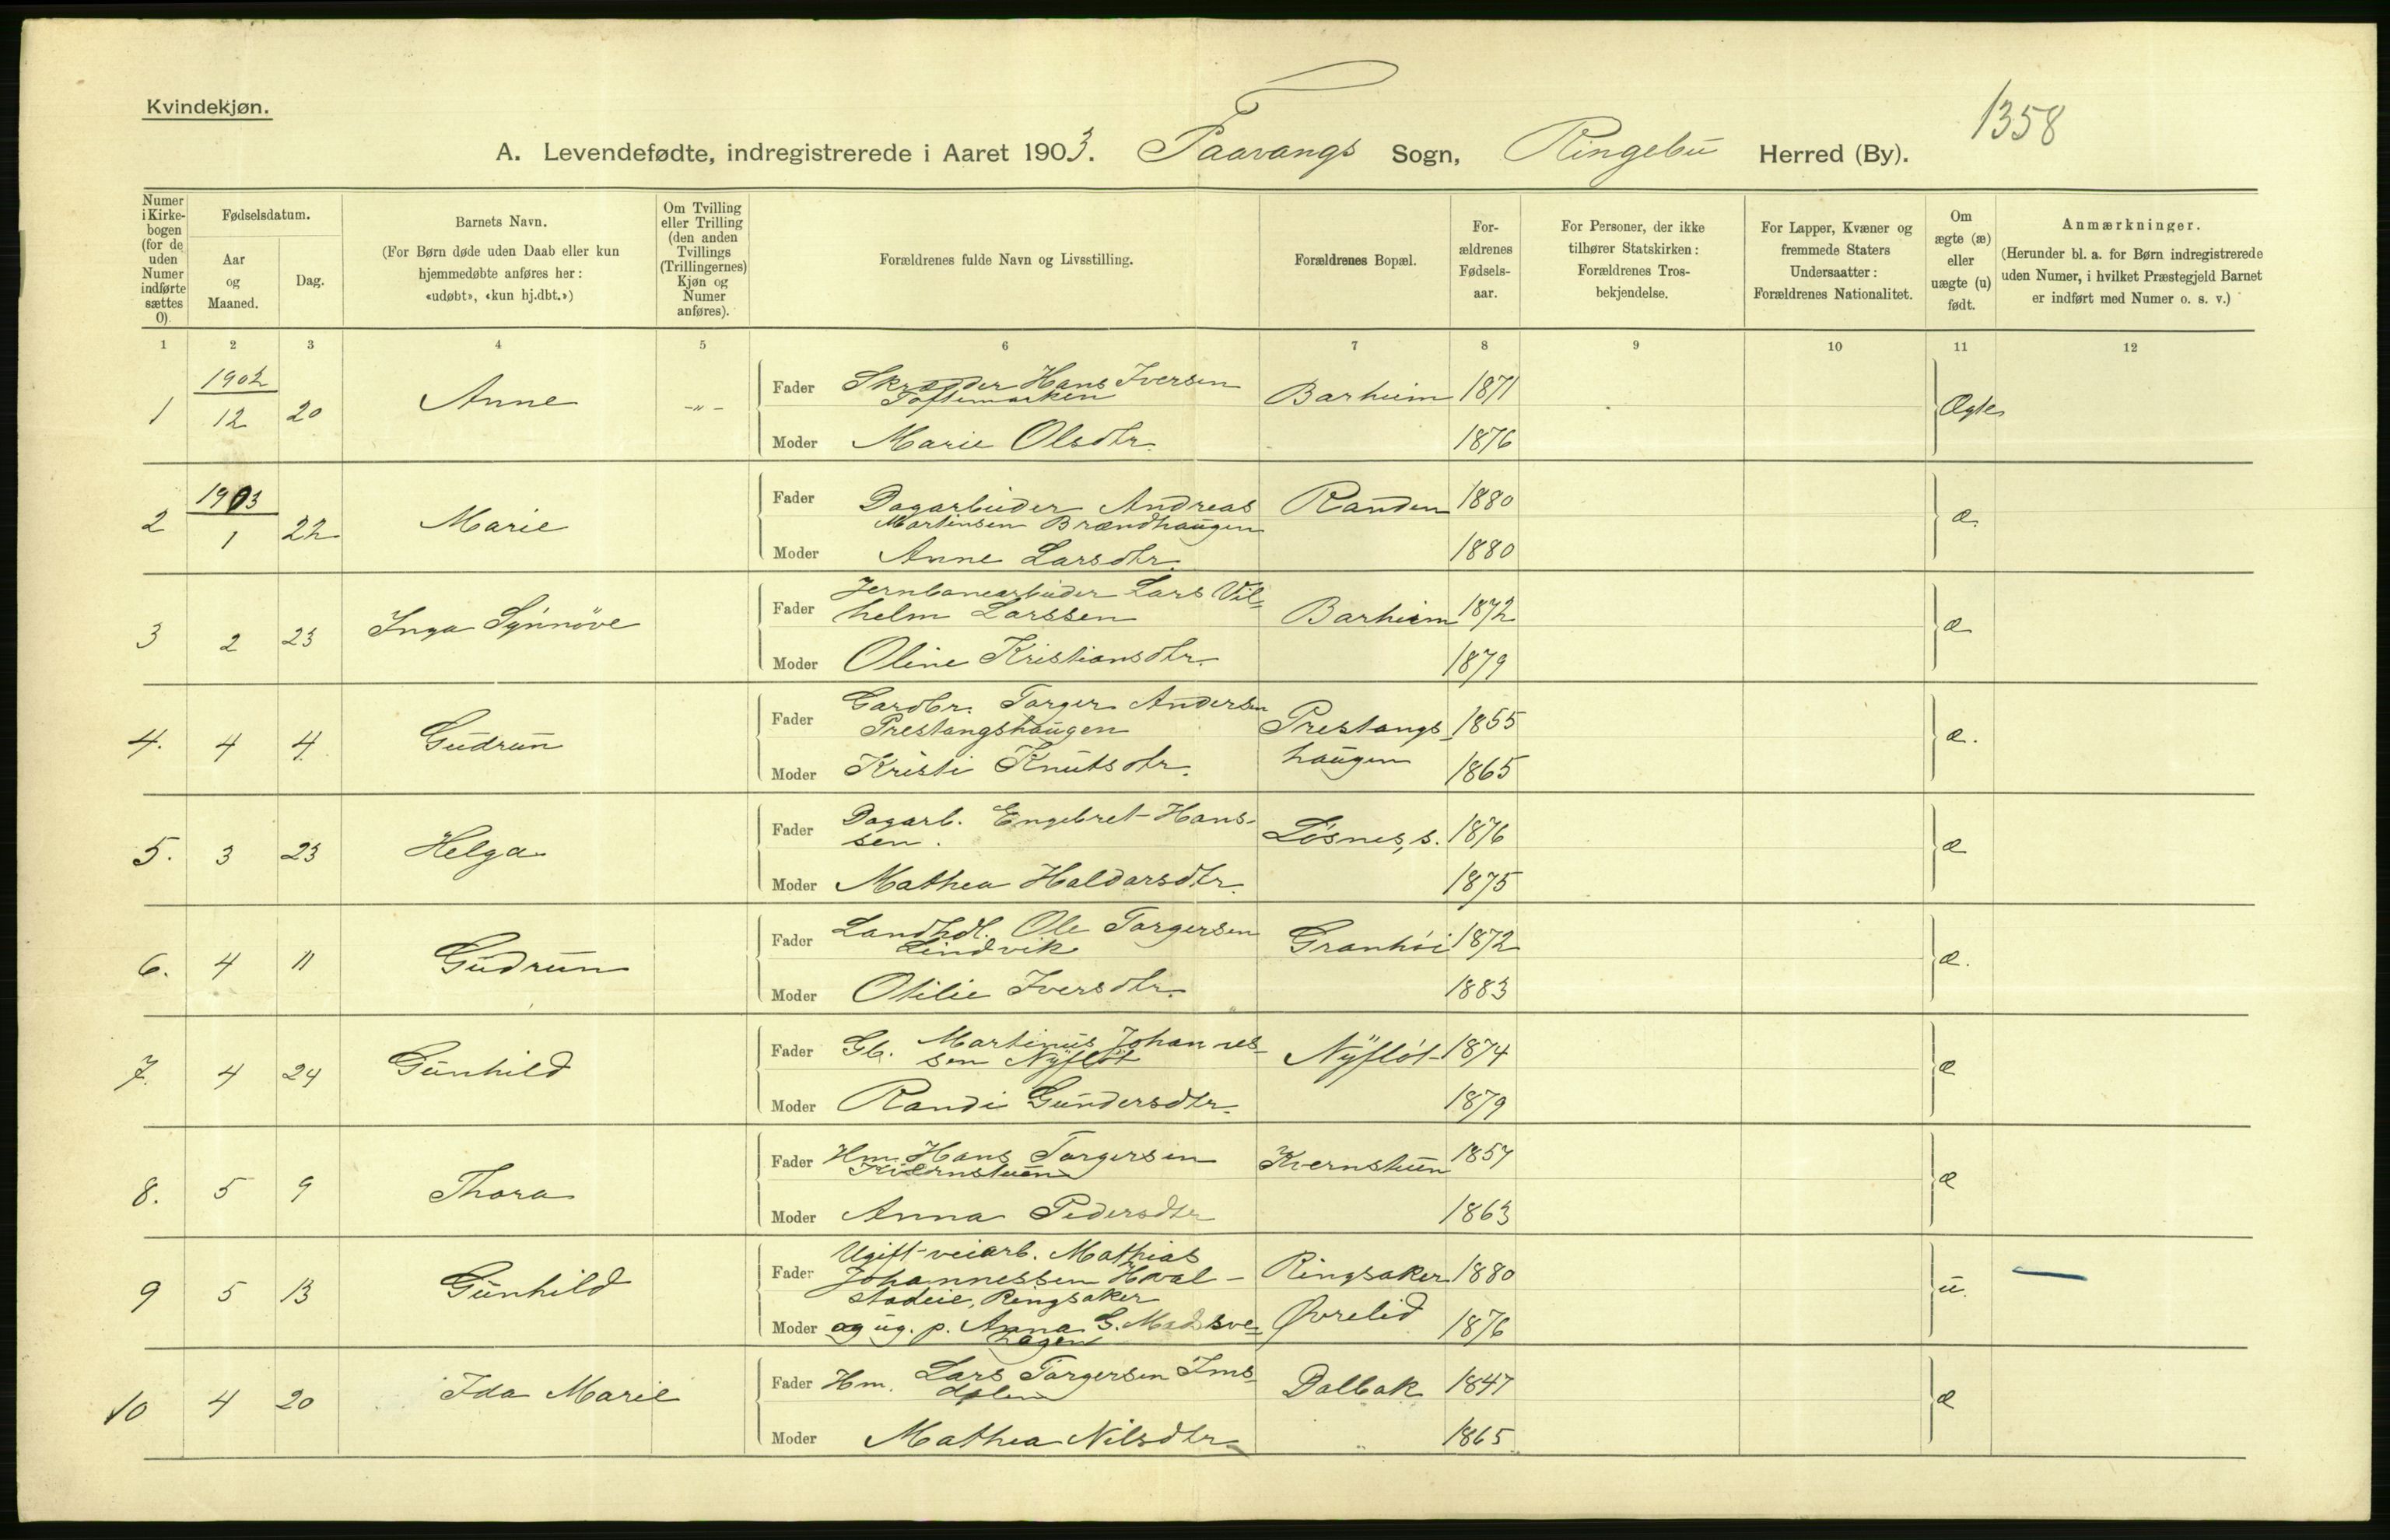 Kvindekjøn.
1358
A. Levendefødte, indregistrerede i Aaret 1903. Faavangs Sogn, Ringebu Herred (By).
Numer i Kirke-bogen (for de uden Numer indførte sættes 0).
Fødselsdatum.
Aar og Maaned.
Dag.
Barnets Navn.
(For Børn døde uden Daab eller kun hjemmedøbte anføres her: «udøbt», «kun hj.dbt.»)
Om Tvilling eller Trilling (den anden Tvillings (Trillingernes) Kjøn og Numer anføres).
Forældrenes fulde Navn og Livsstilling.
Forældrenes Bopæl.
For-ældrenes Fødsels-aar.
For Personer, der ikke tilhører Statskirken: Forældrenes Tros-bekjendelse.
For Lapper, Kvæner og fremmede Staters Undersaatter: Forældrenes Nationalitet.
Om ægte (æ) eller uægte (u) født.
Anmærkninger.
(Herunder bl. a. for Børn indregistrerede uden Numer, i hvilket Præstegjeld Barnet er indført med Numer o. s. v.)
1 2 3 4 5 6 7 8 9 10 11 12
1 1902 12 20 Anne -"- Fader Skrædder Hans Iversen Barheim 1871 Ægte
Toftemarken
Moder Marie Olsdtr. 1876
2 1903 1 22 Marie Fader Dagarbeider Andreas Randen 1880 æ.
Martinsen Brændhaugen
Moder Anne Larsdtr. 1880
3 2 23 Inga Synnöve Fader Jernbanearbeider Lars Vil- Barheim 1872 æ
helm Larssen
Moder Oline Kristiansdtr. 1879
4. 4 4. Gudrun Fader Gardbr. Torger Andersen Prestangs- 1855 æ.
Prestangshaugen haugen
Moder Kristi Knutsdtr. 1865
5. 3 23 Helga Fader Dagarb. Engebret Hans- Lösnes, s. 1876 æ
sen.
Moder Mathea Haldorsdtr. 1875
6. 4 11 Gudrun Fader Landhdl. Ole Torgersen Granhöi 1872 æ.
Lindvik
Moder Otilie Iversdtr. 1883
7. 4 24 Gunhild Fader Gb. Martinus Johannes- Nyflöt 1874 æ
sen Nyflöt
Moder Randi Gundersdtr. 1879
8. 5 9 Thora Fader Hm. Hans Torgersen Kvernstuen 1857 æ
Kvernstuen
Moder Anna Pedersdtr 1863
9 5 13 Gunhild Fader Ugift veiarb. Mathias Ringsaker 1880 u.
Johannessen Hval-
stadeie, Ringsaker
Moder og ug. p. Anna G. Øvrelid 1876
hagen
10 4 20 Ida Marie Fader Hm. Lars Torgersen Ims- Dalbak 1847 æ
dalen
Moder Mathea Nilsdtr. " 1865